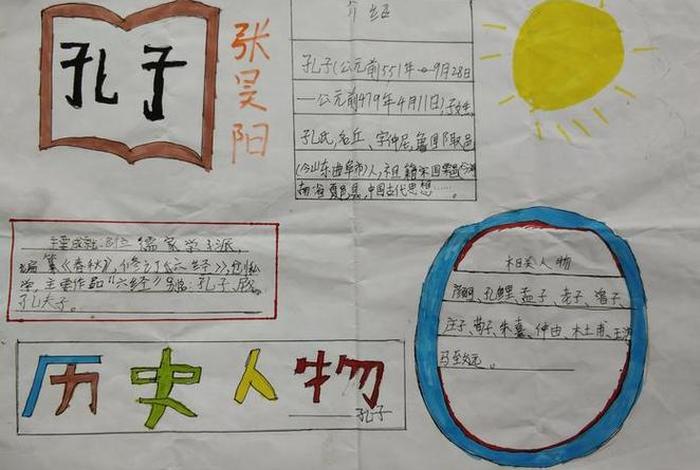 孔子
张昊阳
介绍
孔子(公元前551年 9月28日
—公元前479年4月11日),子姓,
孔氏,名丘,字仲尼,鲁国陬邑
(今山东曲阜市)人,祖籍宋国栗邑(今河
南省夏邑县,中国古代思想……
主要成就:创立儒家学派,
编纂《春秋》,修订《六经》,
主要作品"六经"别名:孔子,
孔夫子。
相关人物
颜回、孔鲤、孟子、老子、曾子、
庄子、荀子、朱熹、仲由、
历史人物
——孔子